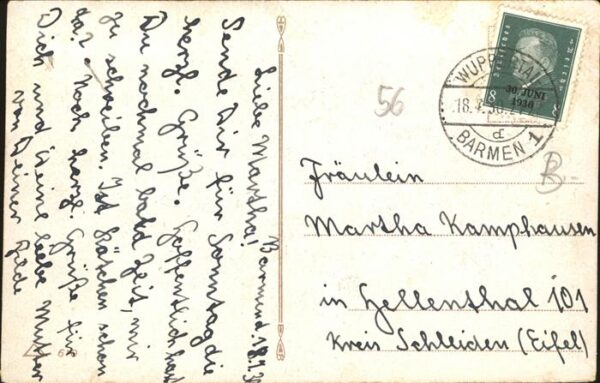 Barmen d. 18.7.30
Liebe Martha!
Sende Dir für Sonntag die
herzl. Grüße. Hoffentlich hast
Du nochmal bald Zeit, mir
zu schreiben. Ist Kätchen schon
da? Noch herzl. Grüße für
Dich und Deine liebe Mutter
von Deiner
Deutsches Reich
8 8
30. JUNI
1930
WUPPERTAL
18.7.30
d
BARMEN 1
56
Fräulein
Martha Kamphausen
in Hellenthal 101
Kreis Schleiden (Eifel)